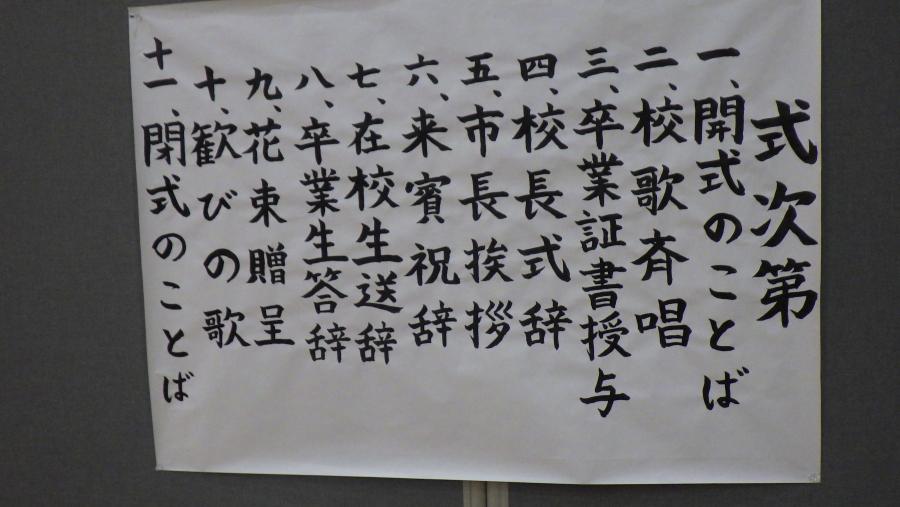 式次第
一、開式のことば
二、校歌斉唱
三、卒業証書授与
四、校長式辞
五、市長挨拶
六、来賓祝辞
七、在校生送辞
八、卒業生答辞
九、花束贈呈
十、歓びの歌
十一、閉式のことば